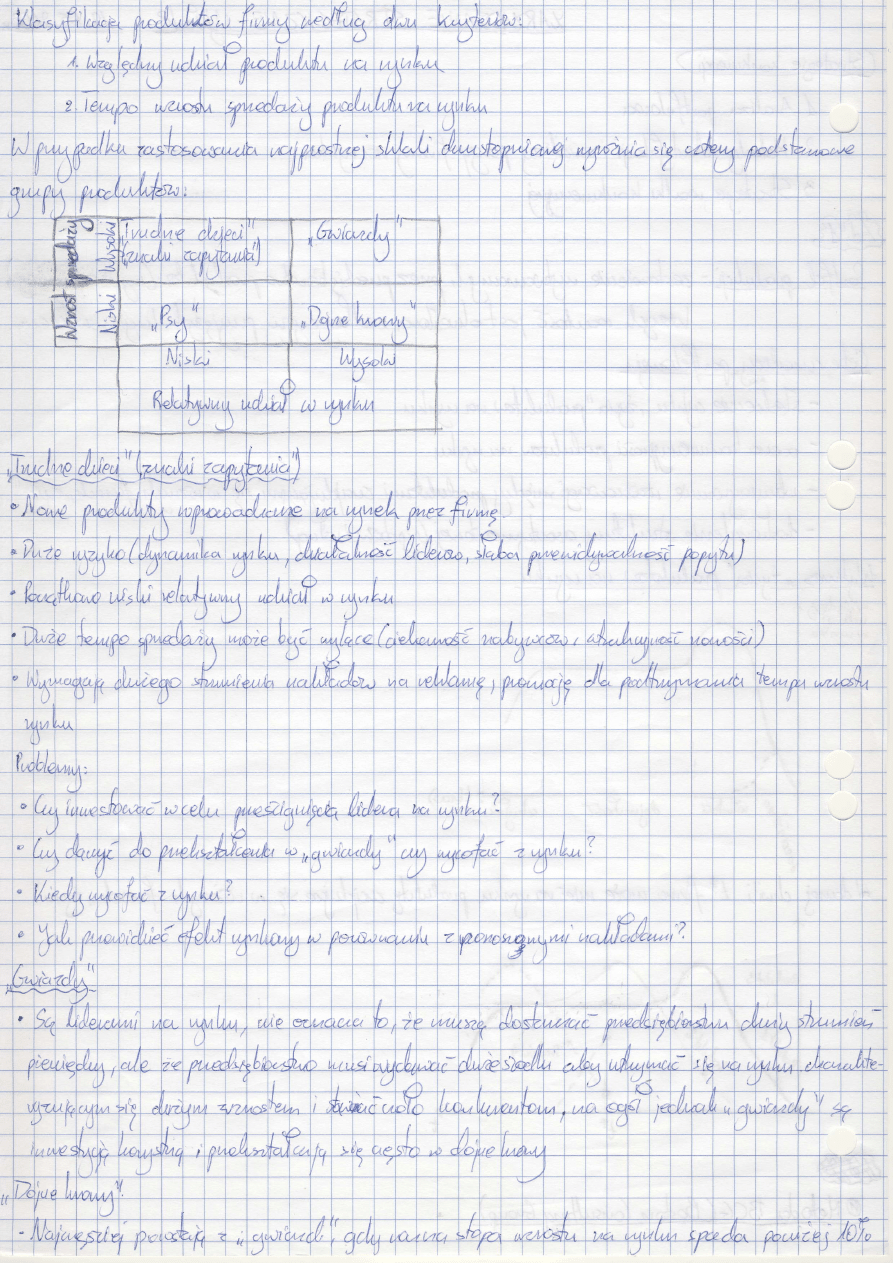 Klasyfikacja produktów firmy według dwu kryteriów:
1. Względny udział produktu na rynku
2. Tempo wzrostu sprzedaży produktu na rynku
W przypadku zastosowania najprostszej skali dwustopniowej wyróżnia się cztery podstawowe
grupy produktów:
Wzrost sprzedaży
Wysoki
„Trudne dzieci"
(znaki zapytania)
„Gwiazdy"
Niski
„Psy"
„Dojne krowy"
Niski
Wysoki
Relatywny udział w rynku
„Trudne dzieci" (znaki zapytania")
• Nowe produkty wprowadzone na rynek przez firmę
• Duże ryzyko (dynamika rynku, działalność liderów, słaba przewidywalność popytu)
• Początkowo niski relatywny udział w rynku
• Duże tempo sprzedaży może być mylące (ciekawość nabywców, atrakcyjność nowości)
• Wymagają dużego strumienia nakładów na reklamę, promocję dla podtrzymania tempa wzrostu
rynku
Problemy:
• Czy inwestować w celu prześcignięcia lidera na rynku?
• Czy dążyć do przekształcenia w „gwiazdy" czy wycofać z rynku?
• Kiedy wycofać z rynku?
• Jak przewidzieć efekt uzyskany w porównaniu z ponoszonymi nakładami?
„Gwiazdy"
• Są liderami na rynku, nie oznacza to, że muszą dostarczać przedsiębiorstwu duży strumień
pieniędzy, ale że przedsiębiorstwo musi wydawać duże środki aby utrzymać się na rynku charakte-
ryzującym się dużym wzrostem i stawiać czoło konkurentom, na ogół jednak „gwiazdy" są
inwestycją korzystną i przekształcają się często w dojne krowy
„Dojne krowy"
- Najczęściej powstają z „gwiazd", gdy roczna stopa wzrostu na rynku spada poniżej 10%